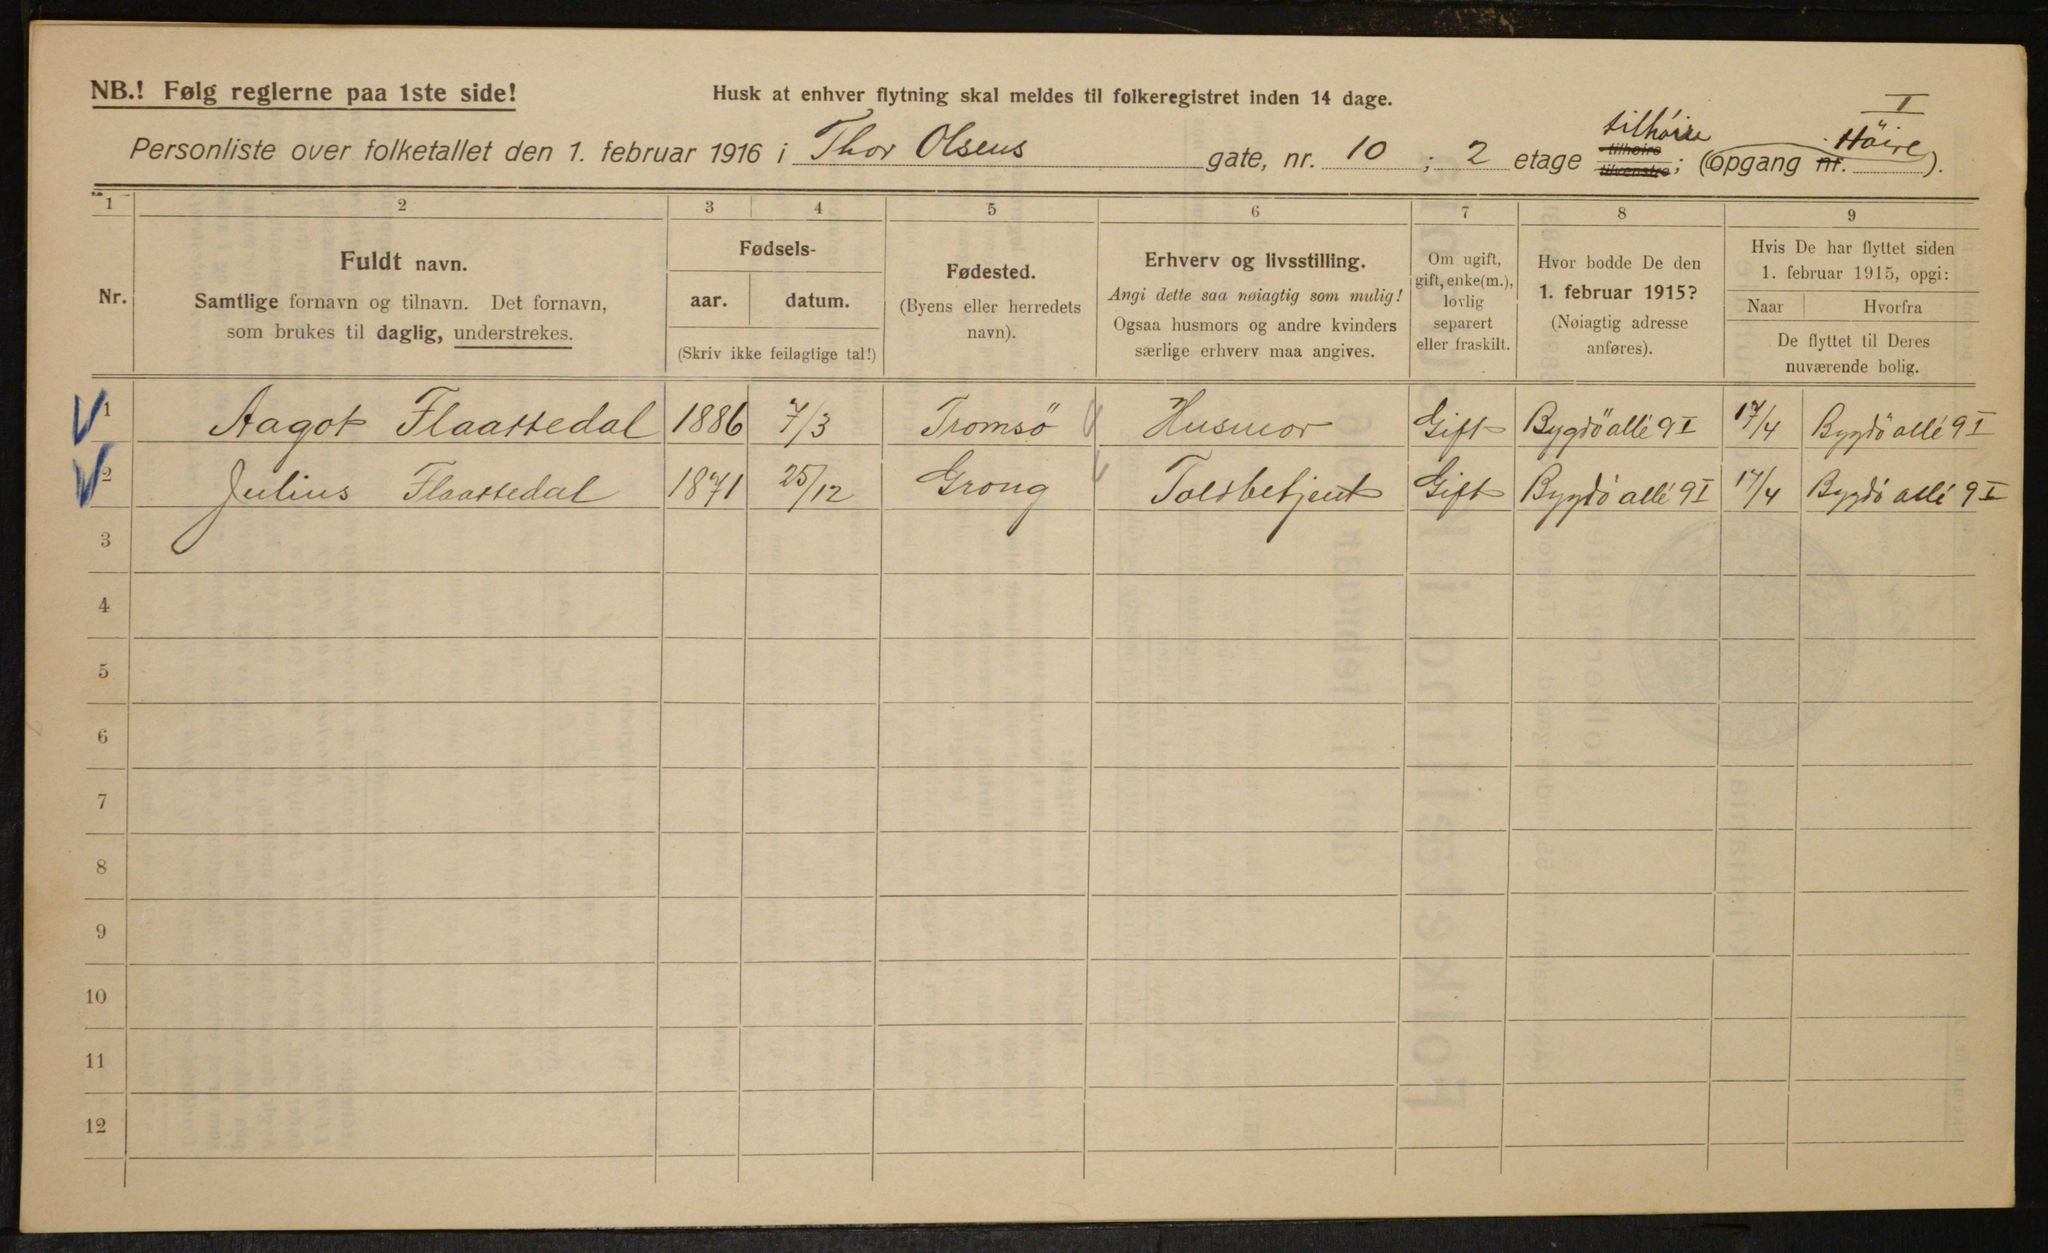 NB.! Følg reglerne paa 1ste side!
Husk at enhver flytning skal meldes til folkeregistret inden 14 dage.
I
tilhöire
Personliste over folketallet den 1. februar 1916 i Thor Olsens gate, nr. 10 ; 2 etage tilhøire tilvenstre; (opgang nr. Höire).
1 2 3 4 5 6 7 8 9
Nr.
Fuldt navn.
Samtlige fornavn og tilnavn. Det fornavn,
som brukes til daglig, understrekes.
Fødsels-
aar. datum.
(Skriv ikke feilagtige tal!)
Fødested.
(Byens eller herredets
navn).
Erhverv og livsstilling.
Angi dette saa nøiagtig som mulig!
Ogsaa husmors og andre kvinders
særlige erhverv maa angives.
Om ugift,
gift, enke(m.),
lovlig
separert
eller fraskilt.
Hvor bodde De den
1. februar 1915?
(Nøiagtig adresse
anføres).
Hvis De har flyttet siden
1. februar 1915, opgi:
Naar Hvorfra
De flyttet til Deres
nuværende bolig.
1 Aagot Flaattedal 1886 7/3 Tromsö Husmor Gift Bygdö allé 9 I 17/4 Bygdö allé 9 I
2 Julius Flaattedal 1871 25/12 Grong Toldbetjent Gift Bygdö allé 9 I 17/4 Bygdö allé 9 I
3
4
5
6
7
8
9
10
11
12